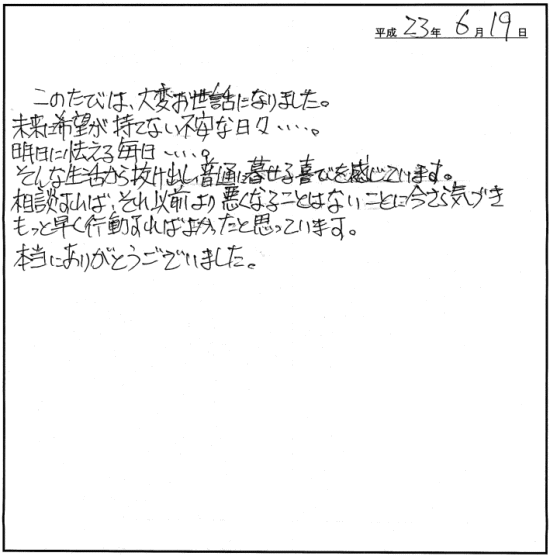 平成 23年 6月 19日
このたびは、大変お世話になりました。
未来に希望が持てない不安な日々‥‥。
明日に怯える毎日‥‥。
そんな生活から抜け出し普通に暮せる喜びを感じています。
相談すれば、それ以前より悪くなることはないことに今さら気づき
もっと早く行動すればよかったと思っています。
本当にありがとうございました。